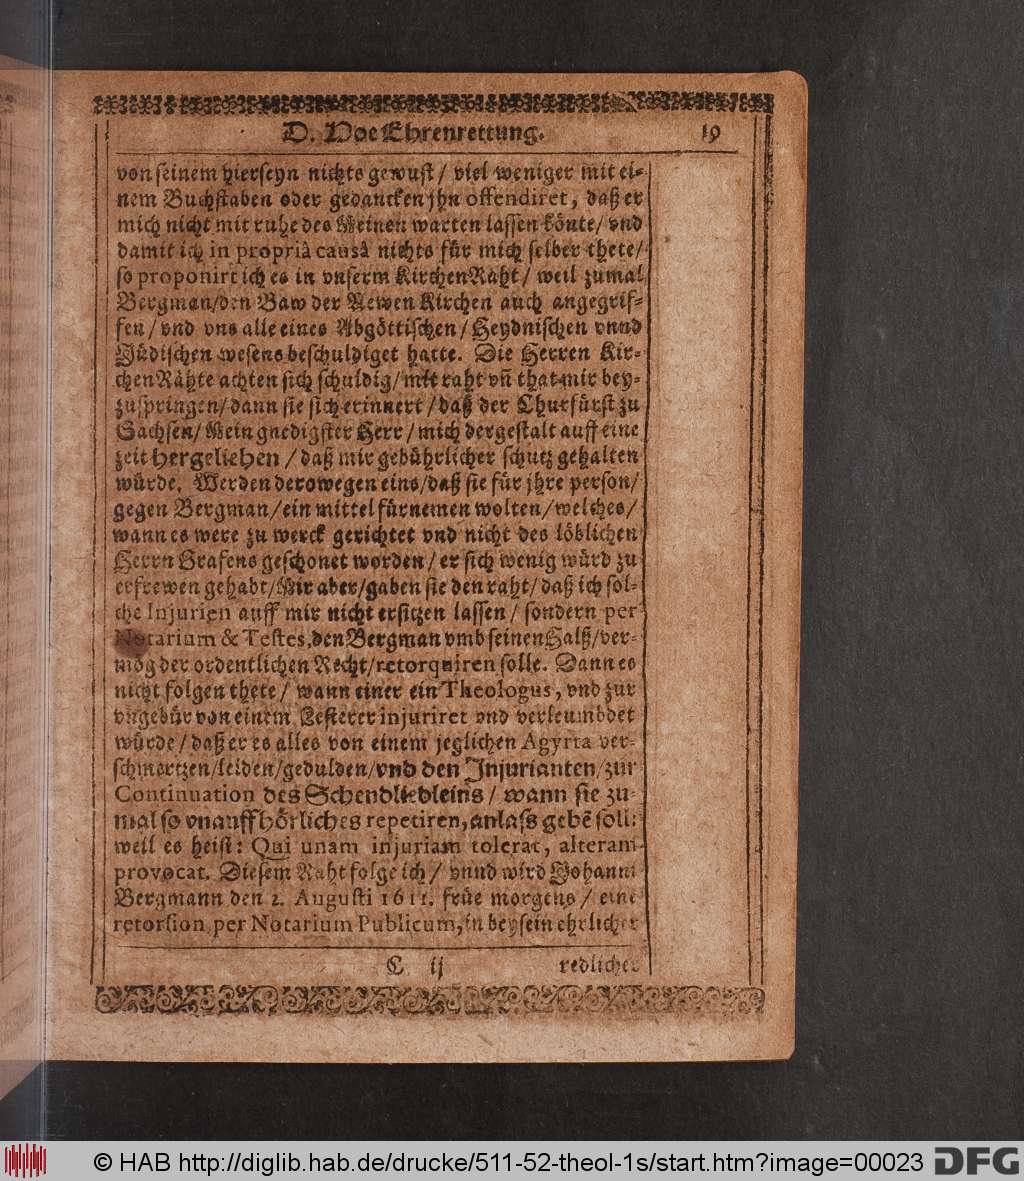 D. Hoe Ehrenrettung. 19
von seinem hierseyn nichts gewust / viel weniger mit ei-
nem Buchstaben oder gedancken jhn offendiret, daß er
mich nicht mit ruhe des Meinen warten lassen könte / vnd
damit ich in propriâ causâ nichts für mich selber thete /
so proponirt ich es in vnserm KirchenRaht / weil zumal
Bergman / den Baw der Newen Kirchen auch angegrif-
fen / vnd vns alle eines Abgöttischen / Heydnischen vnnd
Jüdischen wesens beschuldiget hatte. Die Herren Kir-
chenRähte achten sich schuldig / mit raht vñ that mir bey-
zuspringen / dann sie sich erinnert / daß der Churfürst zu
Sachsen / Mein gnedigster Herr / mich dergestalt auff eine
zeit hergeliehen / daß mir gebührlicher schutz gehalten
würde. Werden derowegen eins / daß sie für jhre person /
gegen Bergman / ein mittel fürnemen wolten / welches /
wann es were zu werck gerichtet vnd nicht des löblichen
Herrn Grafens geschonet worden / er sich wenig würd zu
erfrewen gehabt / Mir aber / gaben sie den raht / daß ich sol-
che Injurien auff mir nicht ersitzen lassen / sondern per
Notarium & Testes, den Bergman vmb seinen Halß / ver-
mög der ordentlichen Recht / retorquiren solle. Dann es
nicht folgen thete / wann einer ein Theologus, vnd zur
vngebür von einem Lesterer injuriret vnd verleumbdet
würde / daß er es alles von einem jeglichen Agyrta ver-
schmertzen / leiden / gedulden / vnd den Injurianten / zur
Continuation des Schendliedleins / wann sie zu-
mal so vnauffhörliches repetiren, anlass gebẽ soll:
weil es heist: Qui unam injuriam tolerat, alteram
provocat. Diesem Raht folge ich / vnnd wird Johanni
Bergmann den 2. Augusti 1611. früe morgens / eine
retorsion per Notarium Publicum, in beysein ehrlicher
C ij redlicher
© HAB http://diglib.hab.de/drucke/511-52-theol-1s/start.htm?image=00023 DFG